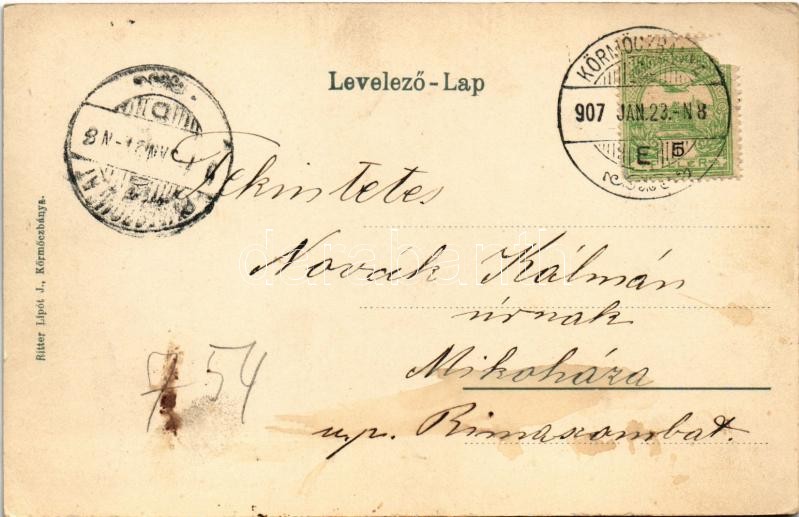 Levelező-Lap
KÖRMÖCZB
907 JAN.23.-N8
E 5
Tekintetes
Novák Kálmán
úrnak
Mikoháza
u.p. Rimaszombat.
7 54
Ritter Lipót J., Körmöczbánya.
darabanth